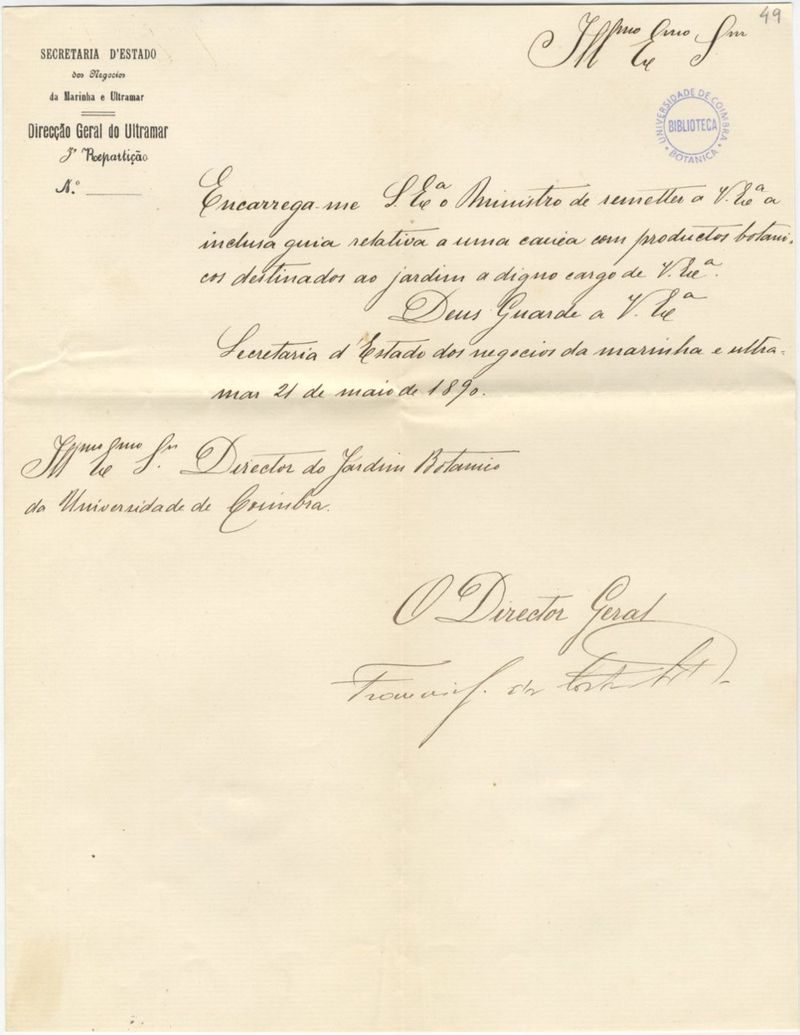 49
Ill.mo Ex.mo Snr
SECRETARIA D'ESTADO
dos Negocios
da Marinha e Ultramar
Direcção Geral do Ultramar
3ª Repartição
N.º
UNIVERSIDADE DE COIMBRA
BIBLIOTECA
BOTANICA
Encarrega-me S. Exª o Ministro de remetter a V. Exª a
inclusa guia relativa a uma caixa com productos botani-
cos destinados ao jardim a digno cargo de V. Exª.
Deus Guarde a V. Exª
Secretaria d'Estado dos negocios da marinha e ultra-
mar 21 de maio de 1890.
Ill.mo Ex.mo Sr. Director do Jardim Botanico
da Universidade de Coimbra.
O Director Geral
Francisco da Costa